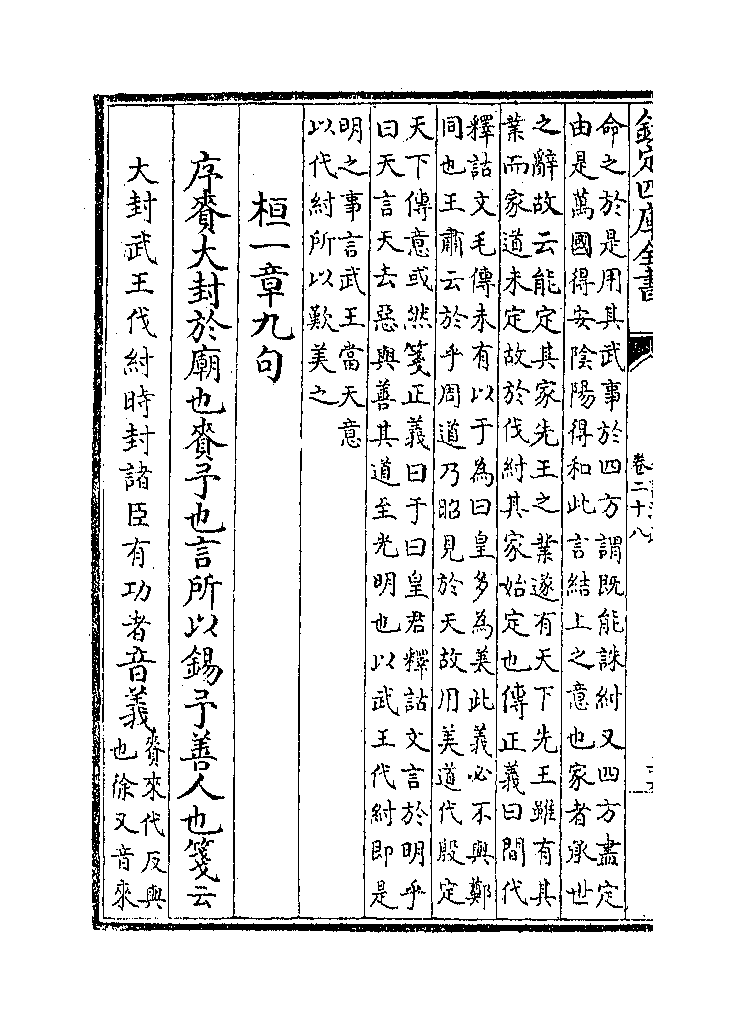 欽定四庫全書
卷二十八
命之於是用其武事於四方謂既能誅紂又四方盡定
由是萬國得安陰陽得和此言結上之意也家者承世
之辭故云能定其家先王之業遂有天下先王雖有其
業而家道未定故於伐紂其家始定也傳正義曰間代
釋詁文毛傳未有以于為曰皇多為美此義必不與鄭
同也王肅云於乎周道乃昭見於天故用美道代殷定
天下傳意或然箋正義曰于曰皇君釋詁文言於明乎
曰天言天去惡與善其道至光明也以武王代紂即是
明之事言武王當天意
以代紂所以歎美之
桓一章九句
序賚大封於廟也賚予也言所以錫予善人也箋云
大封武王伐紂時封諸臣有功者音義
賚來代反與
也徐又音來